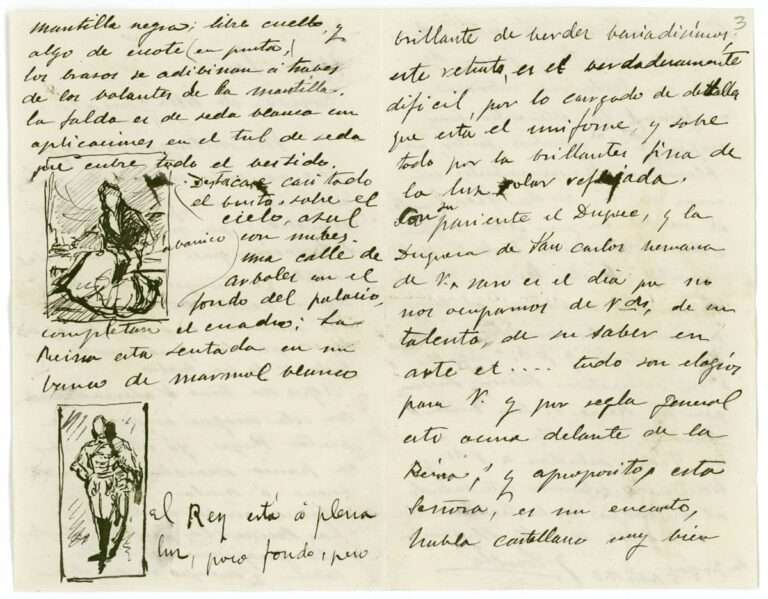 mantilla negra; libre cuello, y
algo de escote (en punta,)
los brasos se adibinan a traves
de los volantes de la mantilla.
la falda es de seda blanca con
aplicaciones en el tul de seda
que cubre todo el vestido.
Destacase casi todo
el busto, sobre el
cielo, azul
con nubes.
banico
una calle de
arboles en el
fondo del palacio,
completan el cuadro; La
Reina esta sentada en un
banco de marmol blanco
El Rey está á plena
luz, poco fondo, pero
3
brillante de verdes bariadisimos.
este retrato, es el verdaderamente
dificil, por lo cargado de detalla
que está el uniforme, y sobre
todo por la brillantes fina de
la luz solar reflejada.
Con su pariente el Duque, y la
Duquesa de San Carlos hermana
de V. raro es el dia que no
nos ocupamos de Vds, de su
talento, de su saber en
arte et.... todo son elogios
para V. y por regla general
esto ocurre delante de la
Reina; y aproposito, esta
Señora, es un encanto,
habla castellano muy bien